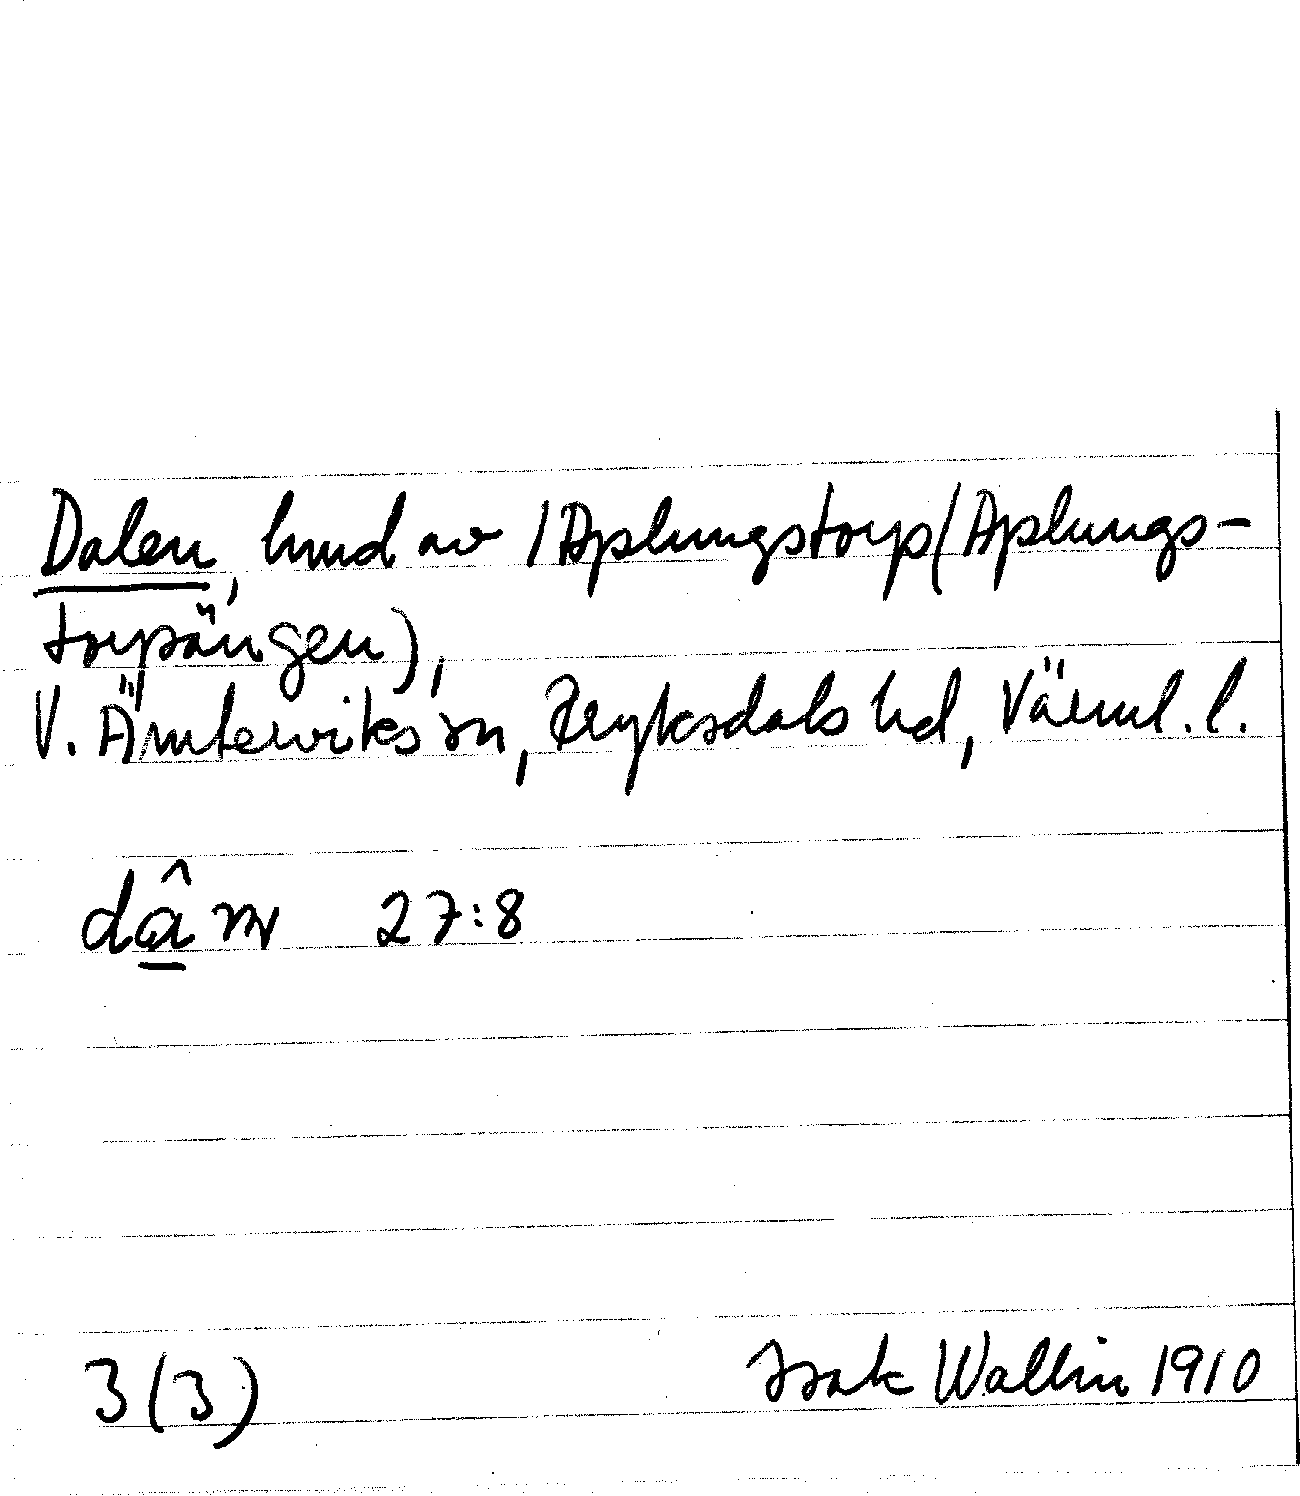 Dalen, hmd av 1 Aplungstorp (Aplungs-
torpängen),
V. Ämterviks sn, Fryksdals hd, Värml. l.
dâm 27:8
3 (3) Isak Wallin 1910